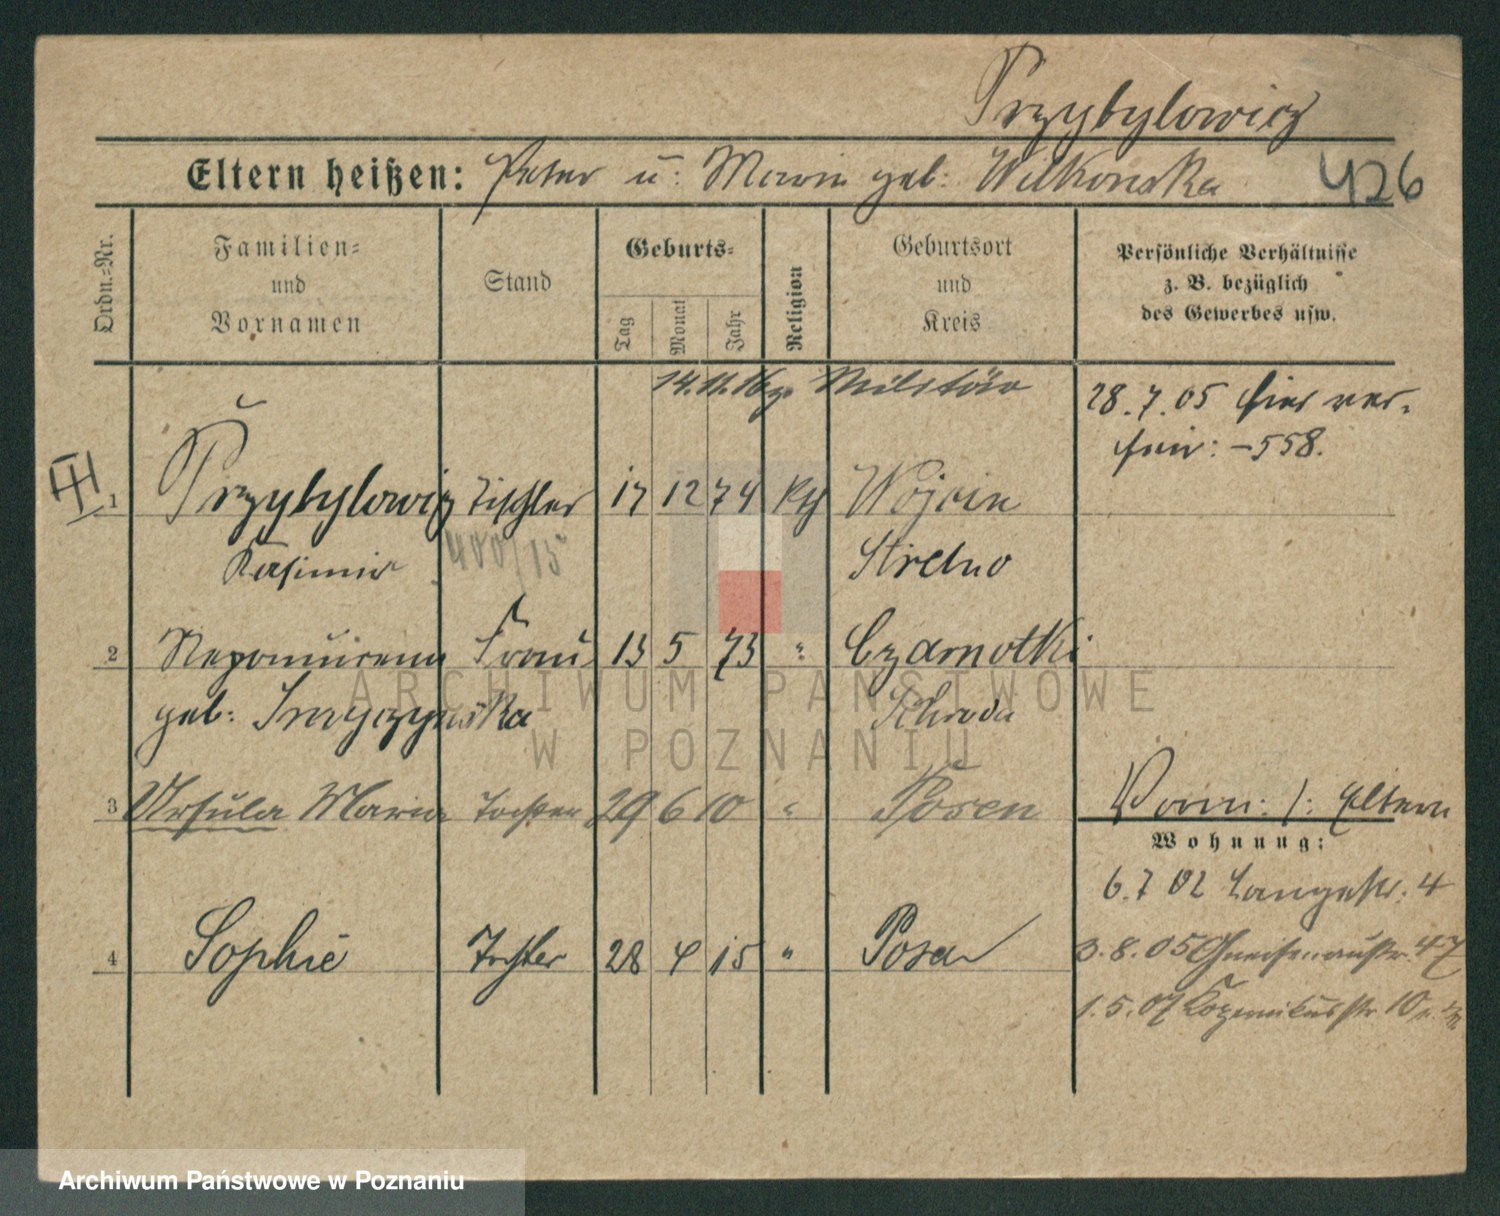 Przybylowicz
Eltern heißen: Peter u. Marie geb. Wilkonska 426
Ordn.-Nr.
Familien- und Vornamen
Stand
Geburts-
Tag Monat Jahr
Religion
Geburtsort und Kreis
Persönliche Verhältnisse
z. B. bezüglich
des Gewerbes usw.
14.11.16 z. Militär
28.7.05 hier ver-
heir: -558.
1 Przybylowicz Tischler 17 12 74 kth Wojcin
Kasimir 400/15 Strelno
2 Frau 13 5 73 " Czarnotki
geb: Schroda
3 Ursula Maria Tochter 29 6 10 " Posen
4 Sophie Tochter 28 4 15 " Posen
Eltern
Wohnung:
6.7 02 Langestr. 4
3.8.05 Gneisenaustr. 47
1.5.07 Kopernikusstr 10
ARCHIWUM PAŃSTWOWE
W POZNANIU
Archiwum Państwowe w Poznaniu